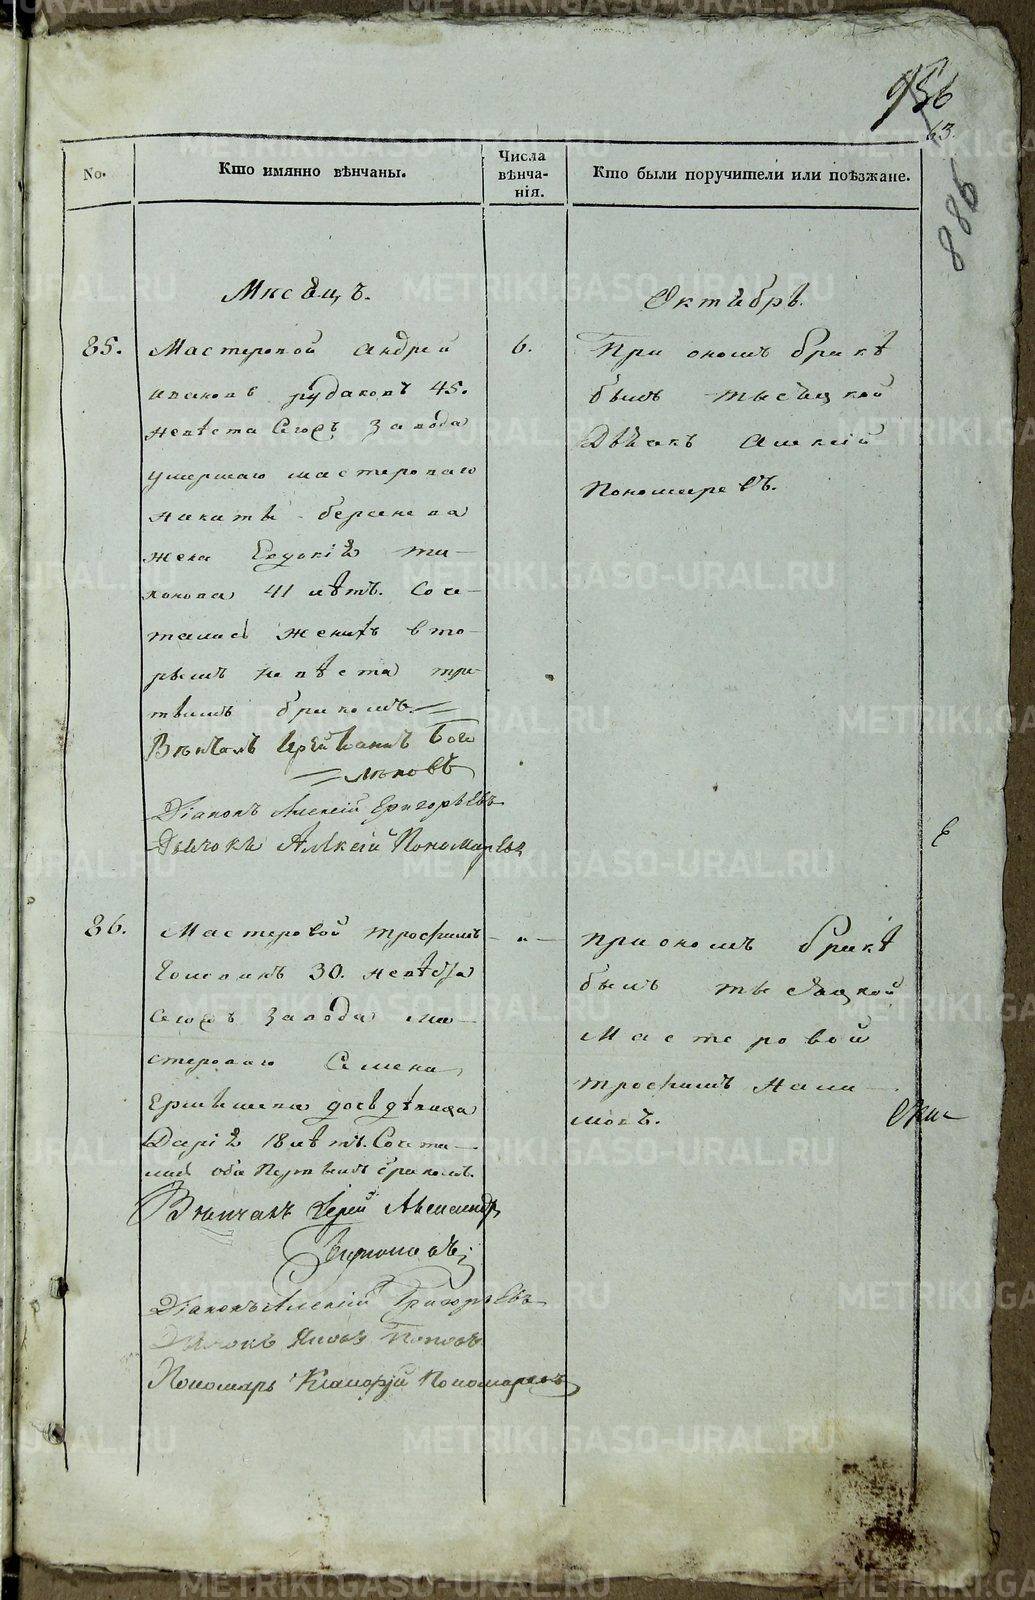 956
63.
886
No.
Кто имянно вѣнчаны.
Числа
вѣнча-
нія.
Кто были поручители или поѣзжане.
Мисѣцъ.
Октибрь.
85.
Мастеровой Андрей
Иванов рудаковъ 45.
невѣста сегожъ завода
умершаго мастероваго
Никиты
жена Евдокія ти-
хонова 41 лѣтъ. Соче-
тались женихъ вто-
рымъ невѣста тре-
тьимъ бракомъ.
Вѣнчалъ Іерей Иоаннъ Бого
Діаконъ Алексій Григорьевъ
Дьячокъ Алексій Пономаревъ
6.
При ономъ бракѣ
былъ тысяцкой
Дьячекъ Алексій
Пономаревъ.
86.
Мастеровой трофимъ
30. невѣста
сегожъ завода ма-
стероваго Семена
дочь дѣвица
Дарія 18 лѣтъ. Сочета-
лись оба первымъ бракомъ.
Вѣнчалъ Іерей Александръ
Діаконъ Алексій Григорьевъ
Дьячокъ Яковъ Поповъ
Пономарь Пономаревъ
- „ -
При ономъ бракѣ
былъ тысяцкой
Мастеровой
трофимъ Нали-
мовъ.
METRIKI.GASO-URAL.RU